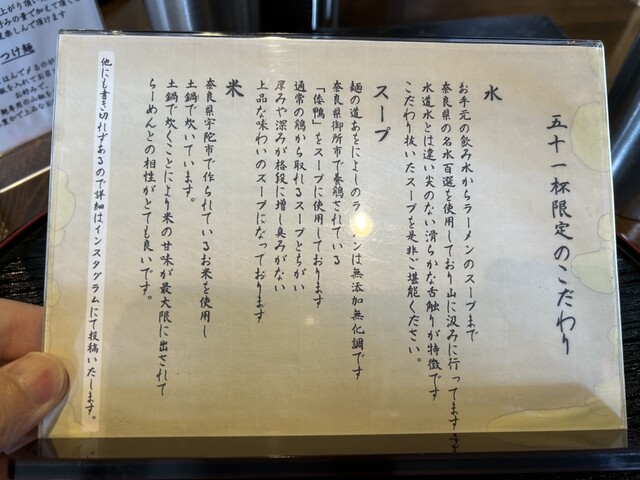 五十一杯限定のこだわり
水
お手元の飲み水からラーメンのスープまで
奈良県の名水百選を使用しており山に汲みに行ってます
水道水とは違い尖のない滑らかな舌触りが特徴です
こだわり抜いたスープを是非ご堪能ください。
スープ
麺の道あをによしのラーメンは無添加無化調です
奈良県御所市で養鶏されている
「倭鴨」をスープに使用しております
通常の鶏から取れるスープとちがい
厚みや深みが格段に増し臭みがない
上品な味わいのスープになっております
米
奈良県宇陀市で作られているお米を使用し
土鍋で炊いています。
土鍋で炊くことにより米の甘味が最大限に出されて
らーめんとの相性がとても良いです。
他にも書き切れずあるので詳細はインスタグラムにて投稿いたします。
つけ麺